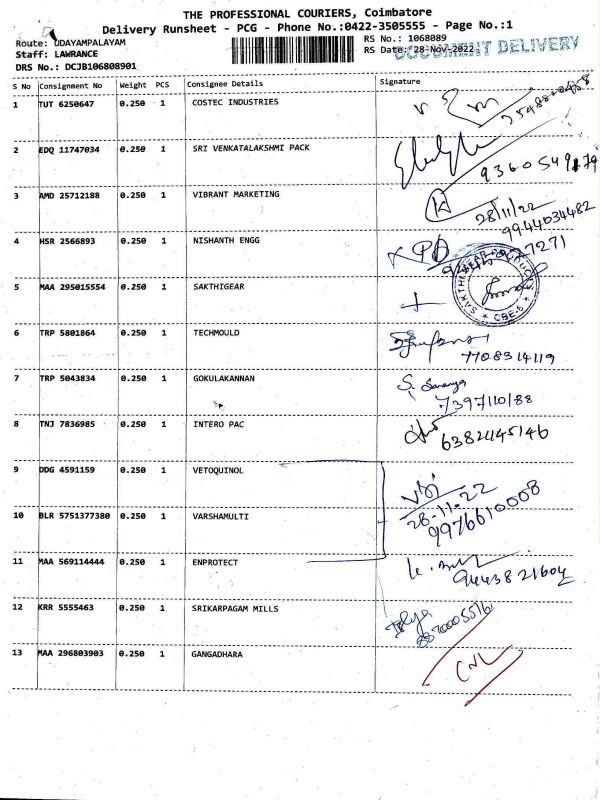 THE PROFESSIONAL COURIERS, Coimbatore
Delivery Runsheet - PCG - Phone No.:0422-3505555 - Page No.:1
Route: UDAYAMPALAYAM
RS No.: 1068089
Staff: LAWRANCE
RS Date: 28-Nov-2022
DOCUMENT DELIVERY
DRS No.: DCJB106808901
S No Consignment No Weight PCS Consignee Details Signature
1 TUT 6250647 0.250 1 COSTEC INDUSTRIES
2 EDQ 11747034 0.250 1 SRI VENKATALAKSHMI PACK
9360549179
3 AMD 25712188 0.250 1 VIBRANT MARKETING
28/11/22
9944034482
4 HSR 2566893 0.250 1 NISHANTH ENGG
5 MAA 295015554 0.250 1 SAKTHIGEAR
CBE-6
6 TRP 5801864 0.250 1 TECHMOULD
7708314119
7 TRP 5043834 0.250 1 GOKULAKANNAN
S. Saranya
7397110188
8 TNJ 7836985 0.250 1 INTERO PAC
6382145146
9 DDG 4591159 0.250 1 VETOQUINOL
28-11-22
9976610008
10 BLR 5751377380 0.250 1 VARSHAMULTI
11 MAA 569114444 0.250 1 ENPROTECT
9443821604
12 KRR 5555463 0.250 1 SRIKARPAGAM MILLS
8870005516
13 MAA 296803903 0.250 1 GANGADHARA
CNL